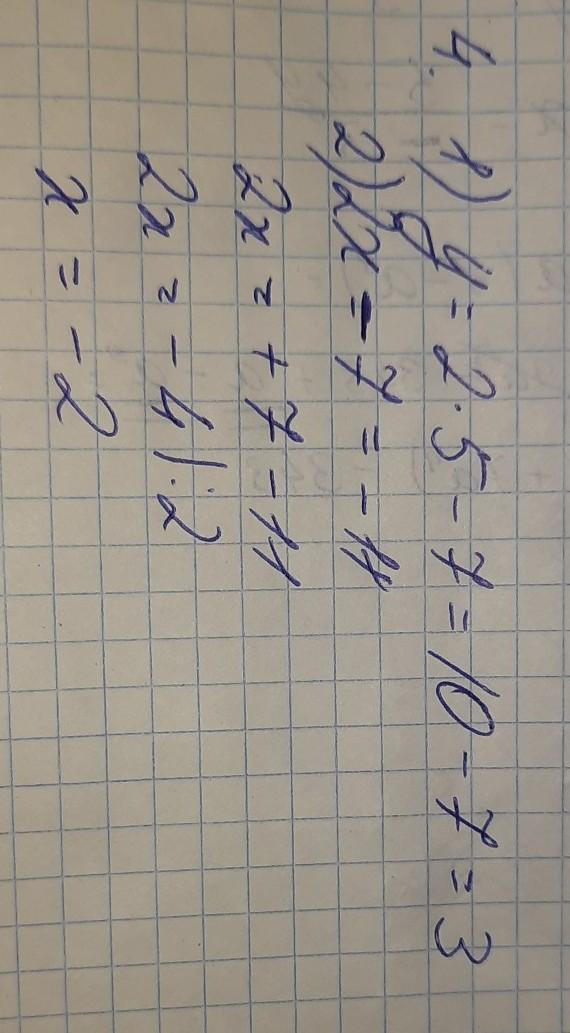 4. 1) y = 2·5 - 7 = 10 - 7 = 3
2) 2x - 7 = - 11
2x = + 7 - 11
2x = - 4 |:2
x = - 2